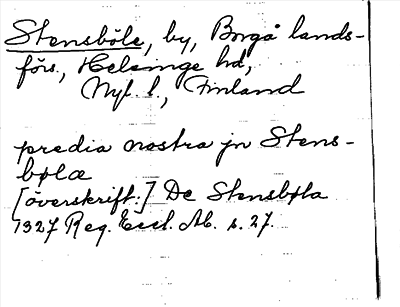 Stensböle, by, Borgå lands-
förs., Helsinge hd,
Nyl. l., Finland
predia nostra jn Stens-
bølæ
[överskrift:] De Stensbøla
1327 Reg. Eccl. Ab. s. 27.